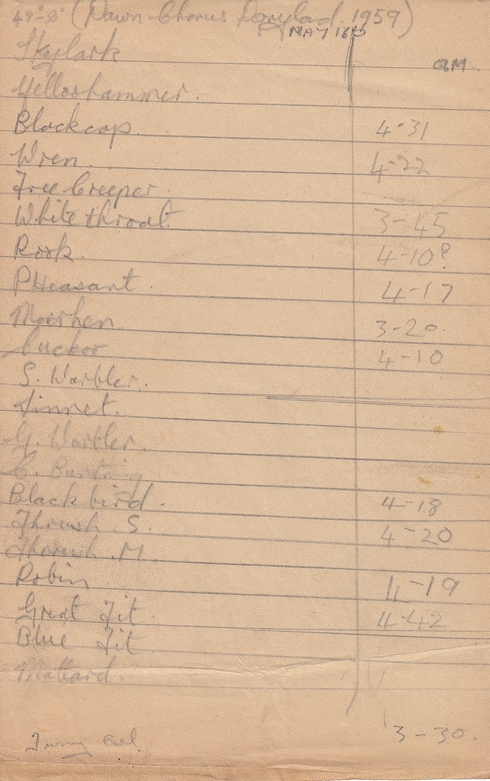 (Dawn Chorus Doryland. 1959)
MAY 16th
Skylark am.
Yellowhammer.
Blackcap. 4-31
Wren. 4-22
Tree Creeper.
Whitethroat 3-45
Rook. 4-10?
PHeasant. 4-17
Moorhen 3-20
Cuckoo 4-10
S. Warbler.
Linnet.
G. Warbler.
C. Bunting
Blackbird. 4-18
Thrush. S. 4-20
Thrush. M.
Robin 4-19
Great Tit. 4-42
Blue Tit
Mallard.
Tawny Owl. 3-30.